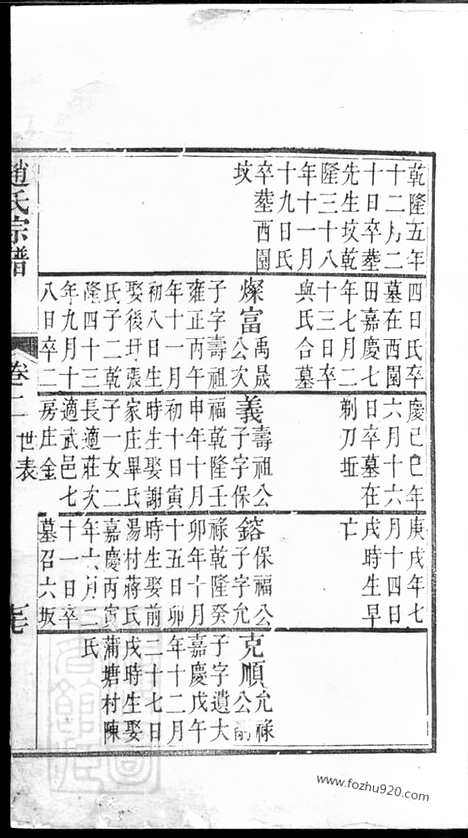 乾隆五年
十二月二
十日卒葬
先生坟乾
隆三十八
年十一月
十九日氏
卒葬西園
坟
四日氏卒
墓在西園
田嘉慶七
年七月二
十三日卒
與氏合墓
燦富禹晟公次
子字壽祖
雍正丙午
年十一月
初八日生
娶後圩張
氏子二乾
隆四十三
年九月十
八日卒二
慶己巳年
六月十六
日卒墓在
剃刀坵
義壽祖公子字保
福乾隆壬
申年十月
初十日寅
時生娶謝
家庄畢氏
子一女二
長適莊次
適武邑七
房庄金
庚戌年七
月十四日
戌時生早
亡
鎔保福公子字允
祿乾隆癸
卯年十月
十五日卯
時生娶前
湯村蔣氏
嘉慶丙寅
年六月二
十一日卒
墓召六坂
克順允祿公嗣
子字遺大
嘉慶戊午
年十二月
二十七日
戌時生娶
蒲塘村陳
氏
趙氏宗譜
卷二
世表
www.fozhu920.com